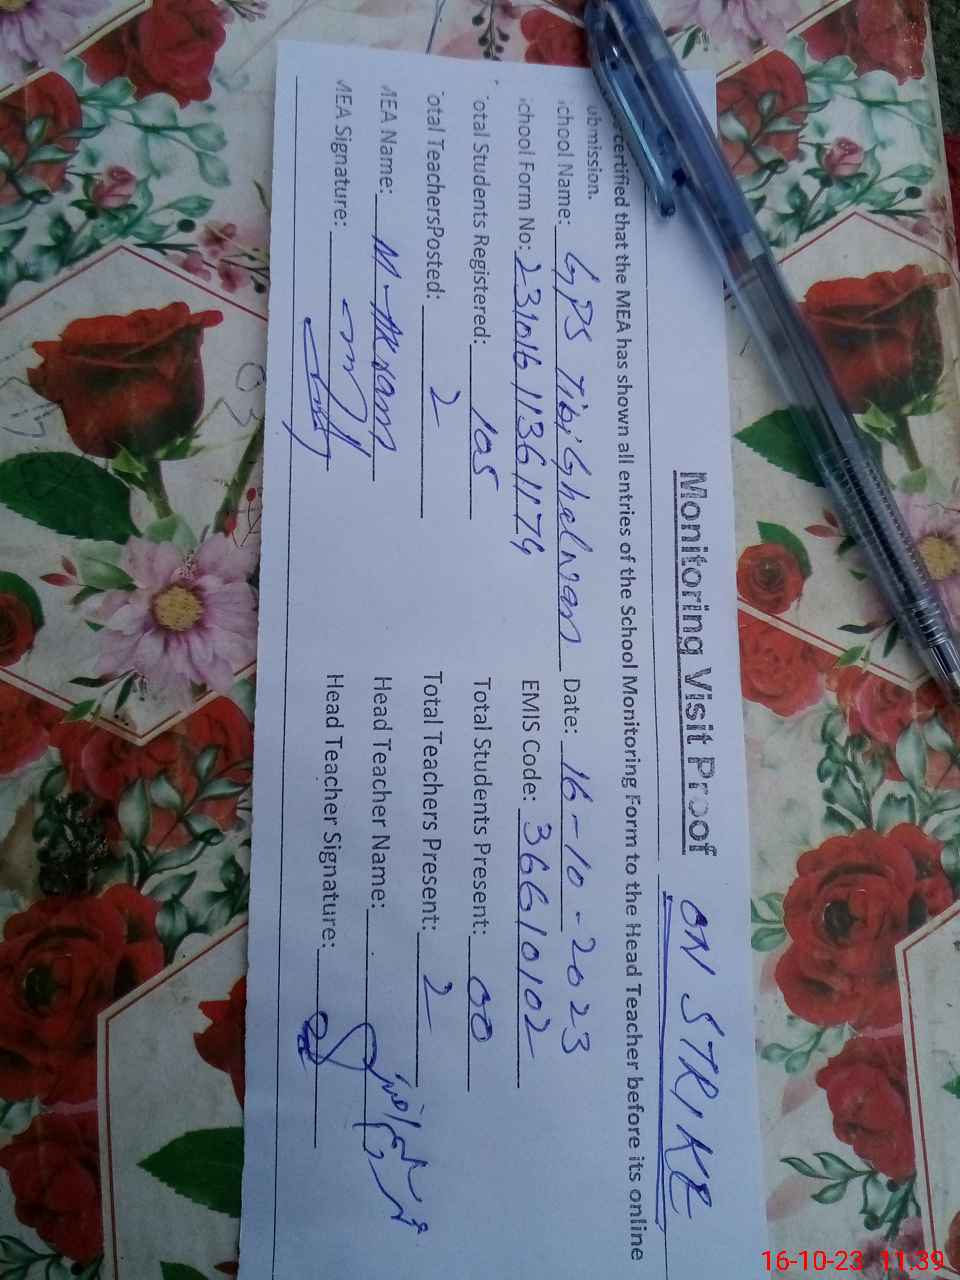 Monitoring Visit Proof ON STRIKE
certified that the MEA has shown all entries of the School Monitoring Form to the Head Teacher before its online
ubmission.
chool Name: GPS Tibi Ghalwan Date: 16-10-2023
chool Form No: EMIS Code: 36610102
otal Students Registered: 105 Total Students Present: 00
otal TeachersPosted: 2 Total Teachers Present: 2
MEA Name: M-Akram Head Teacher Name:
MEA Signature: Head Teacher Signature:
16-10-23 11:39